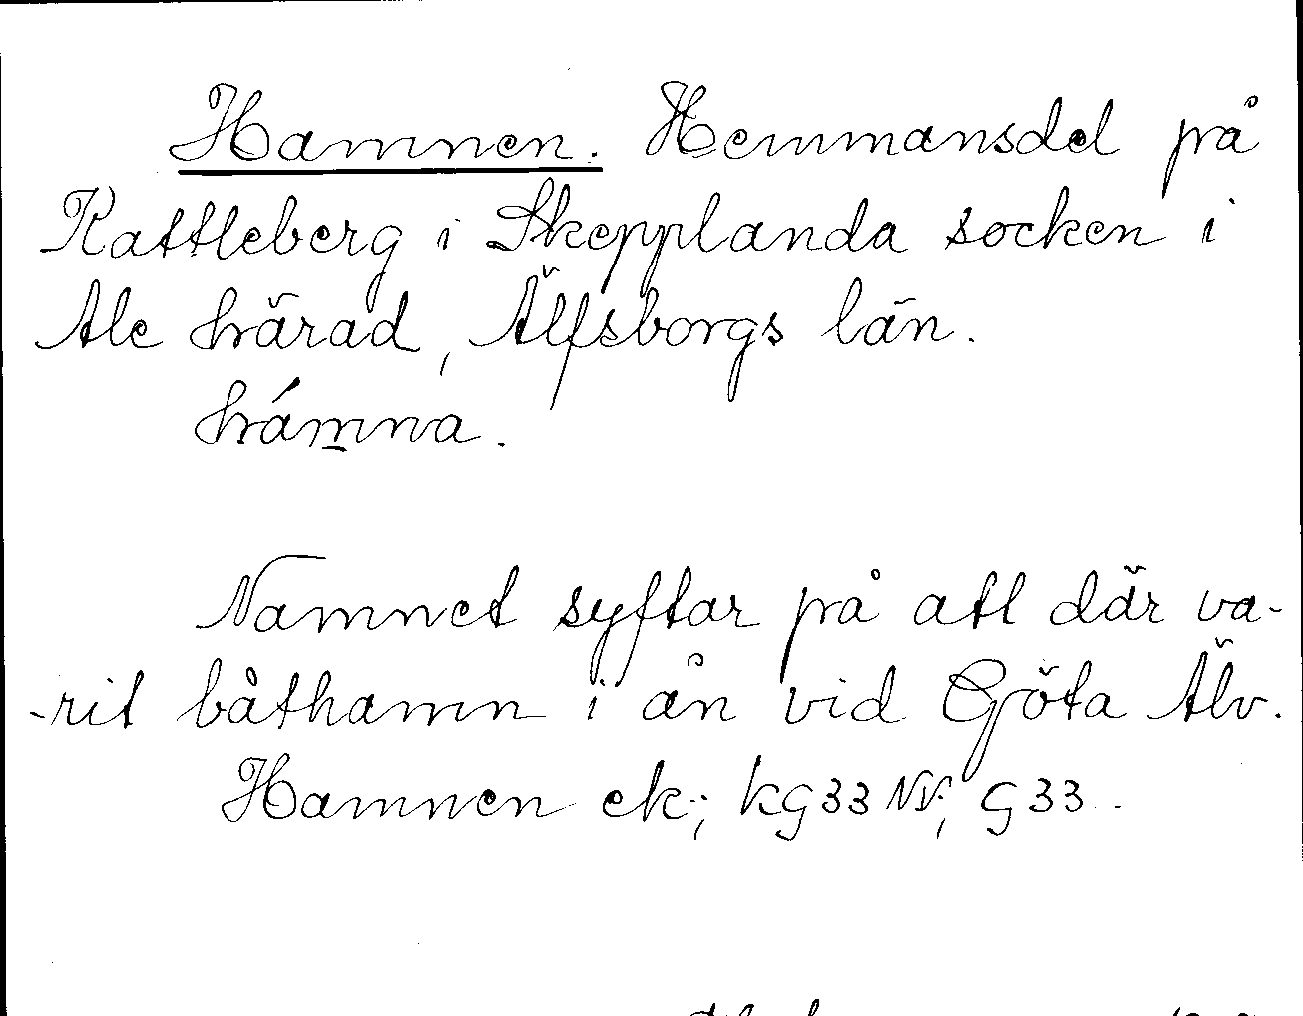 Hamnen. Hemmansdel på
Kattleberg i Skepplanda socken i
Ale härad, Älfsborgs län.
hámna.
Namnet syftar på att där va-
-rit båthamn i ån vid Göta Älv.
Hamnen ek; kg33 NV; G33.